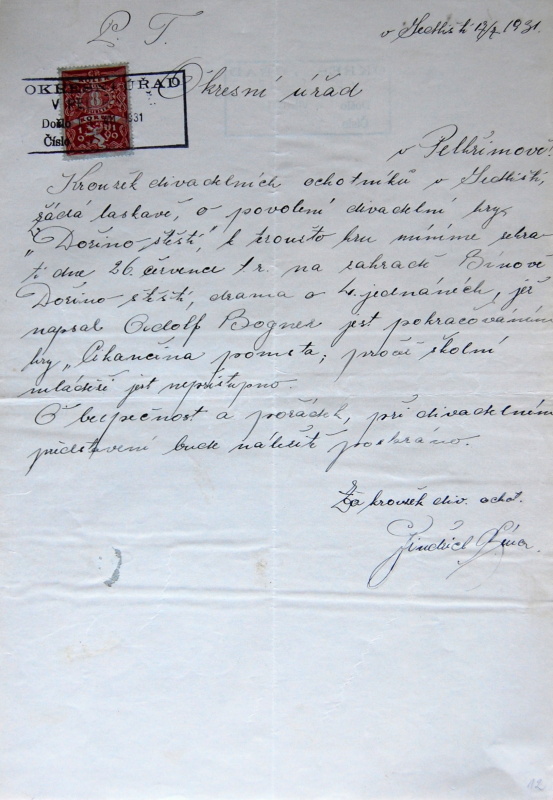 P. T.
v Sedlišti 17/7 1931.
Okresní úřad
OKRESNÍ ÚŘAD
V PE
Došlo 1931
Číslo
v Pelhřimově!
Kroužek divadelních ochotníků v Sedlišti,
žádá laskavě, o povolení divadelní hry
"Dořino štěstí," k kterousto hru míníme sehrá-
ti dne 26. července t. r. na zahradě Bínově
Dořino štěstí, drama o 4 jednáních, jež
napsal Adolf Bogner jest pokračováním
hry "Cikánčina pomsta; pročež školní
mládeži jest nepřístupno.
O bezpečnost a pořádek, při divadelním
představení bude náležitě postaráno.
Za kroužek div. ochot.
Jindřich
12